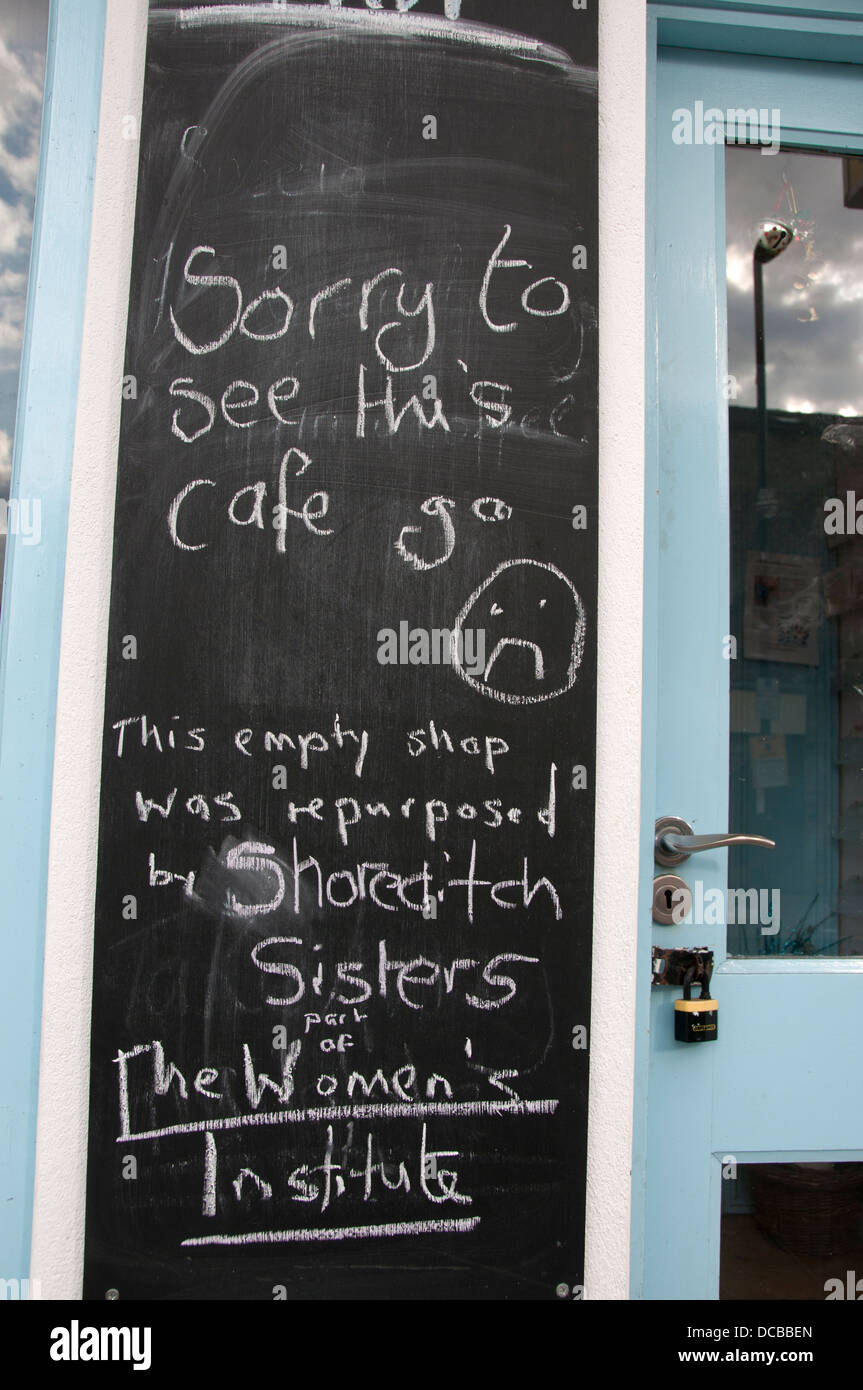 Sorry to
see thi's
cafe go
This empty shop
was repurposed
by Shoreditch
Sisters
part
of
The Women's
Institute
alamy
alamy
Image ID: DCBBEN
www.alamy.com